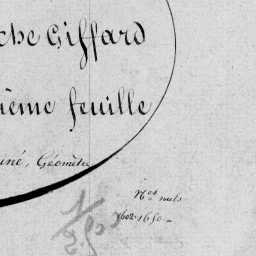 che Giffard
ième feuille
iné, Géomètre
Nos nuls
1602.1650.
1
2500